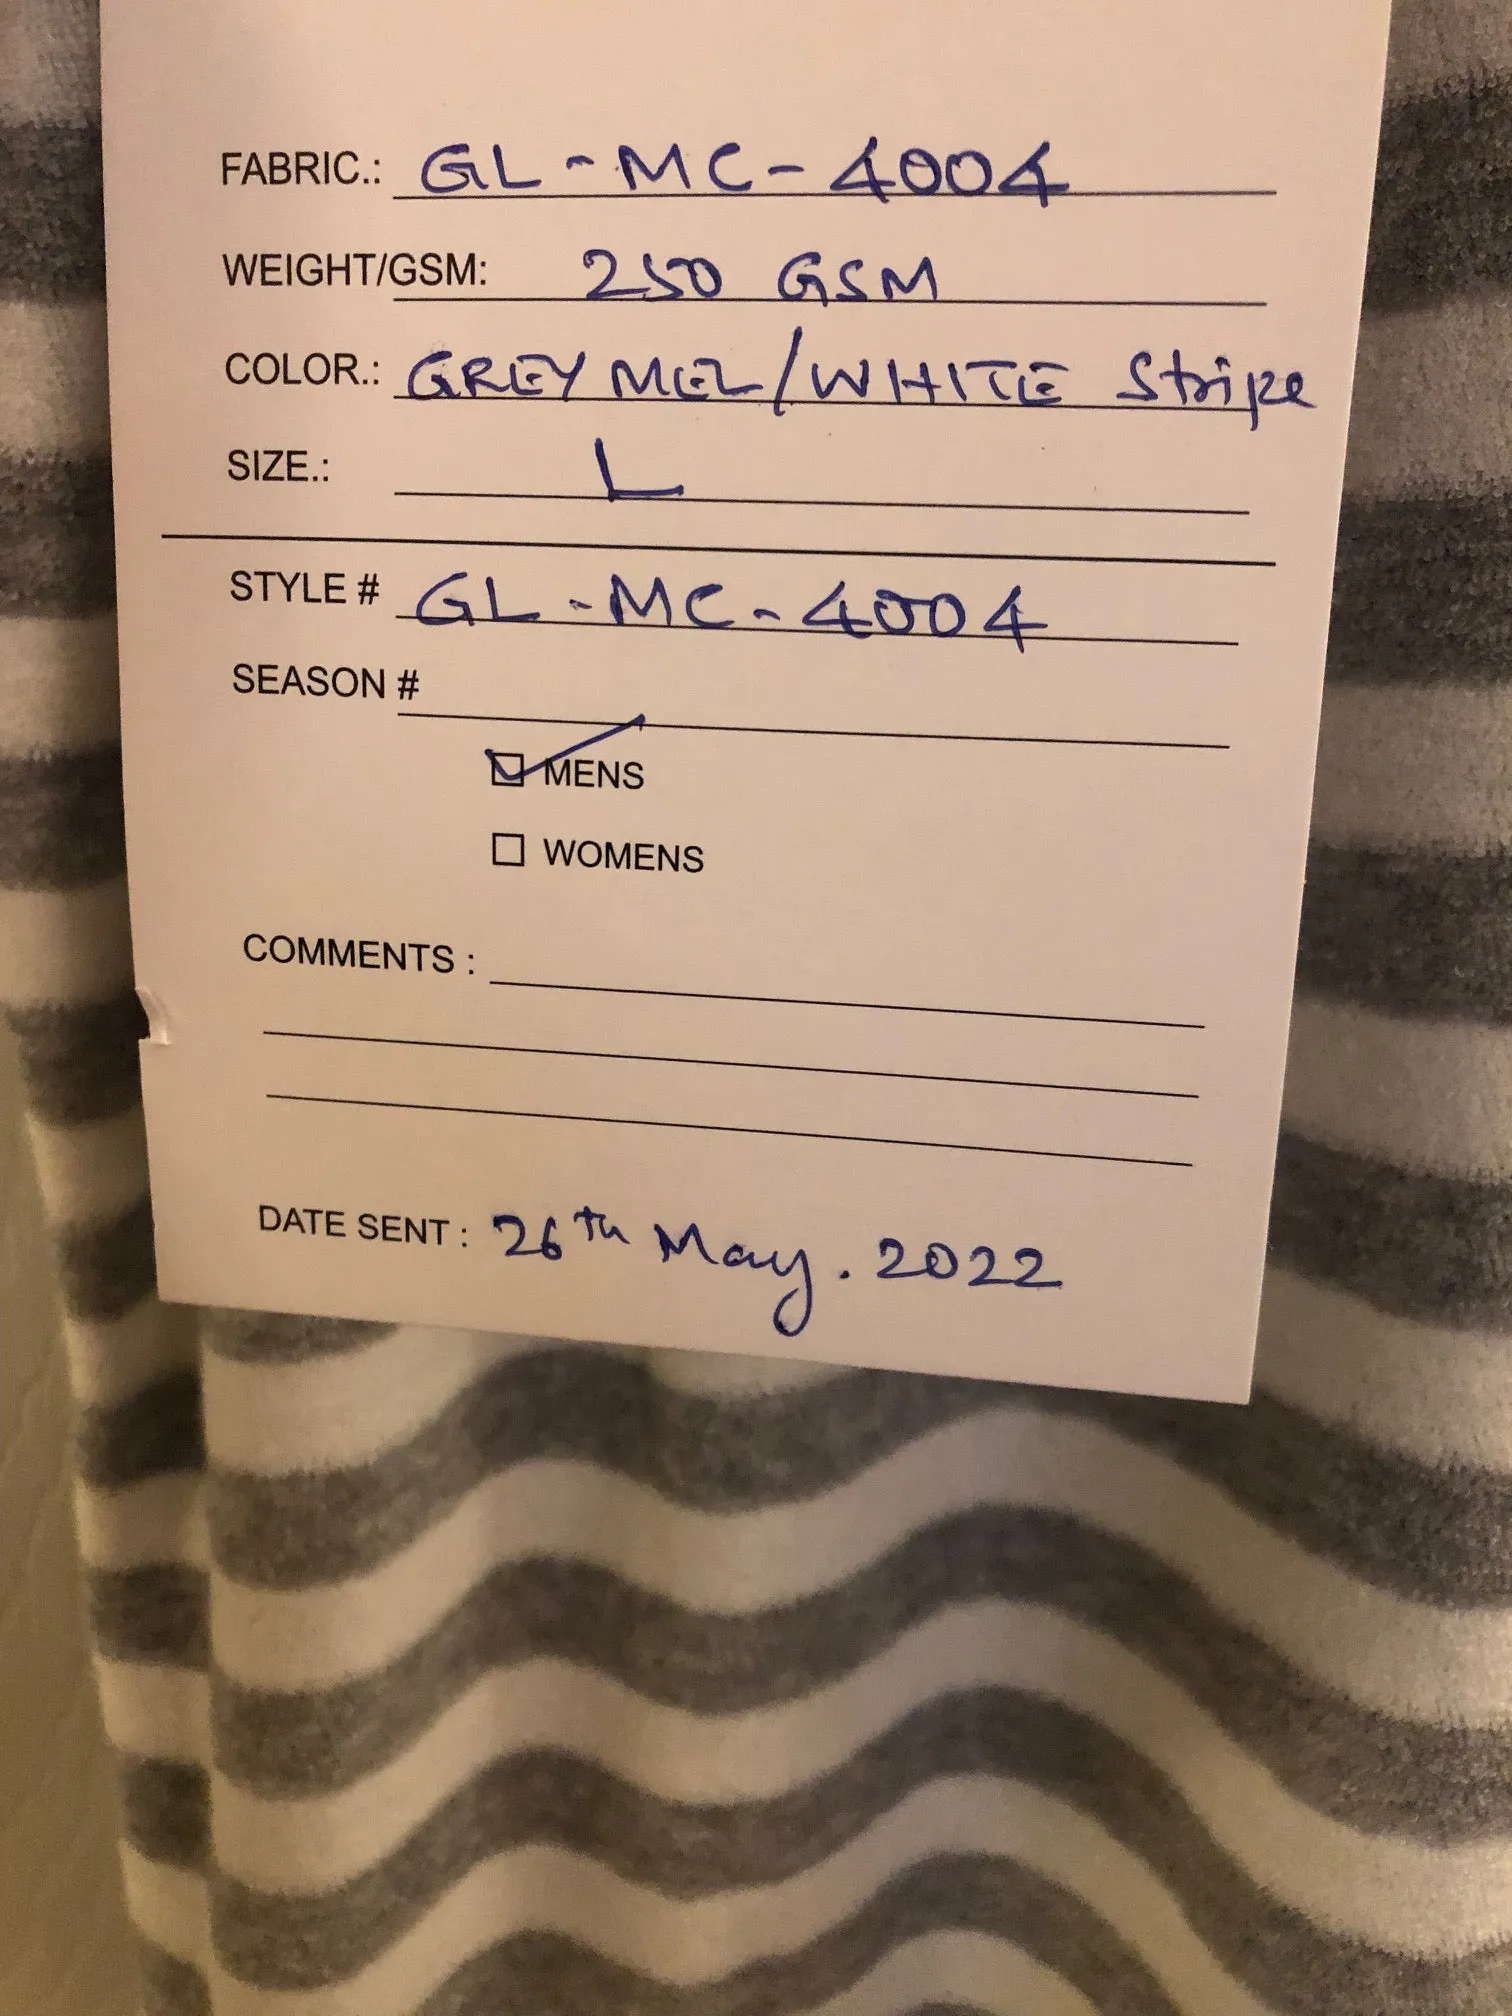 FABRIC.: GL-MC-4004
WEIGHT/GSM: 250 GSM
COLOR.: GREY MEL/WHITE Stripe
SIZE.: L
STYLE # GL-MC-4004
SEASON #
MENS
WOMENS
COMMENTS :
DATE SENT : 26th May. 2022